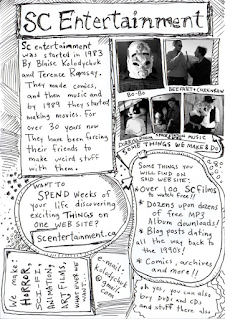 SC Entertainment
SC entertainment
was started in 1983
By Blaise Kolodychuk
and Terence Ramsay.
They made comics,
and then music and
by 1989 they started
making movies. For
over 30 years now
They have been forcing
their friends to
make weird stuff
with them.
Bo-Bo
BEEFNUT + CHEKNBAW
SPACE
MUSIC
SOME THINGS WE MAKE & DO
WANT TO
SPEND Weeks of
your life discovering
exciting THINGS on
ONE WEB SITE?
scentertainment.ca
SOME THINGS YOU
WILL FIND ON
SAID WEB SITE:
* Over 100 SC films
to watch free!!
* Dozens upon dozens
of free MP3
Album downloads!
* Blog posts dating
all the way back to
the 1990s!
* Comics, archives
and more!!
We make:
HORROR,
SCI-FI,
ANIMATION,
ART FILMS,
WHATEVER WE
WANT.
e-mail:
kolodychuk
@
gmail.
com
oh yes, you can also
buy DVDs and CDs
and stuff there also